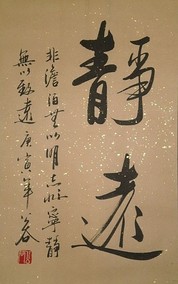 靜遠
非澹泊無以明志非寧靜
無以致遠庚寅年